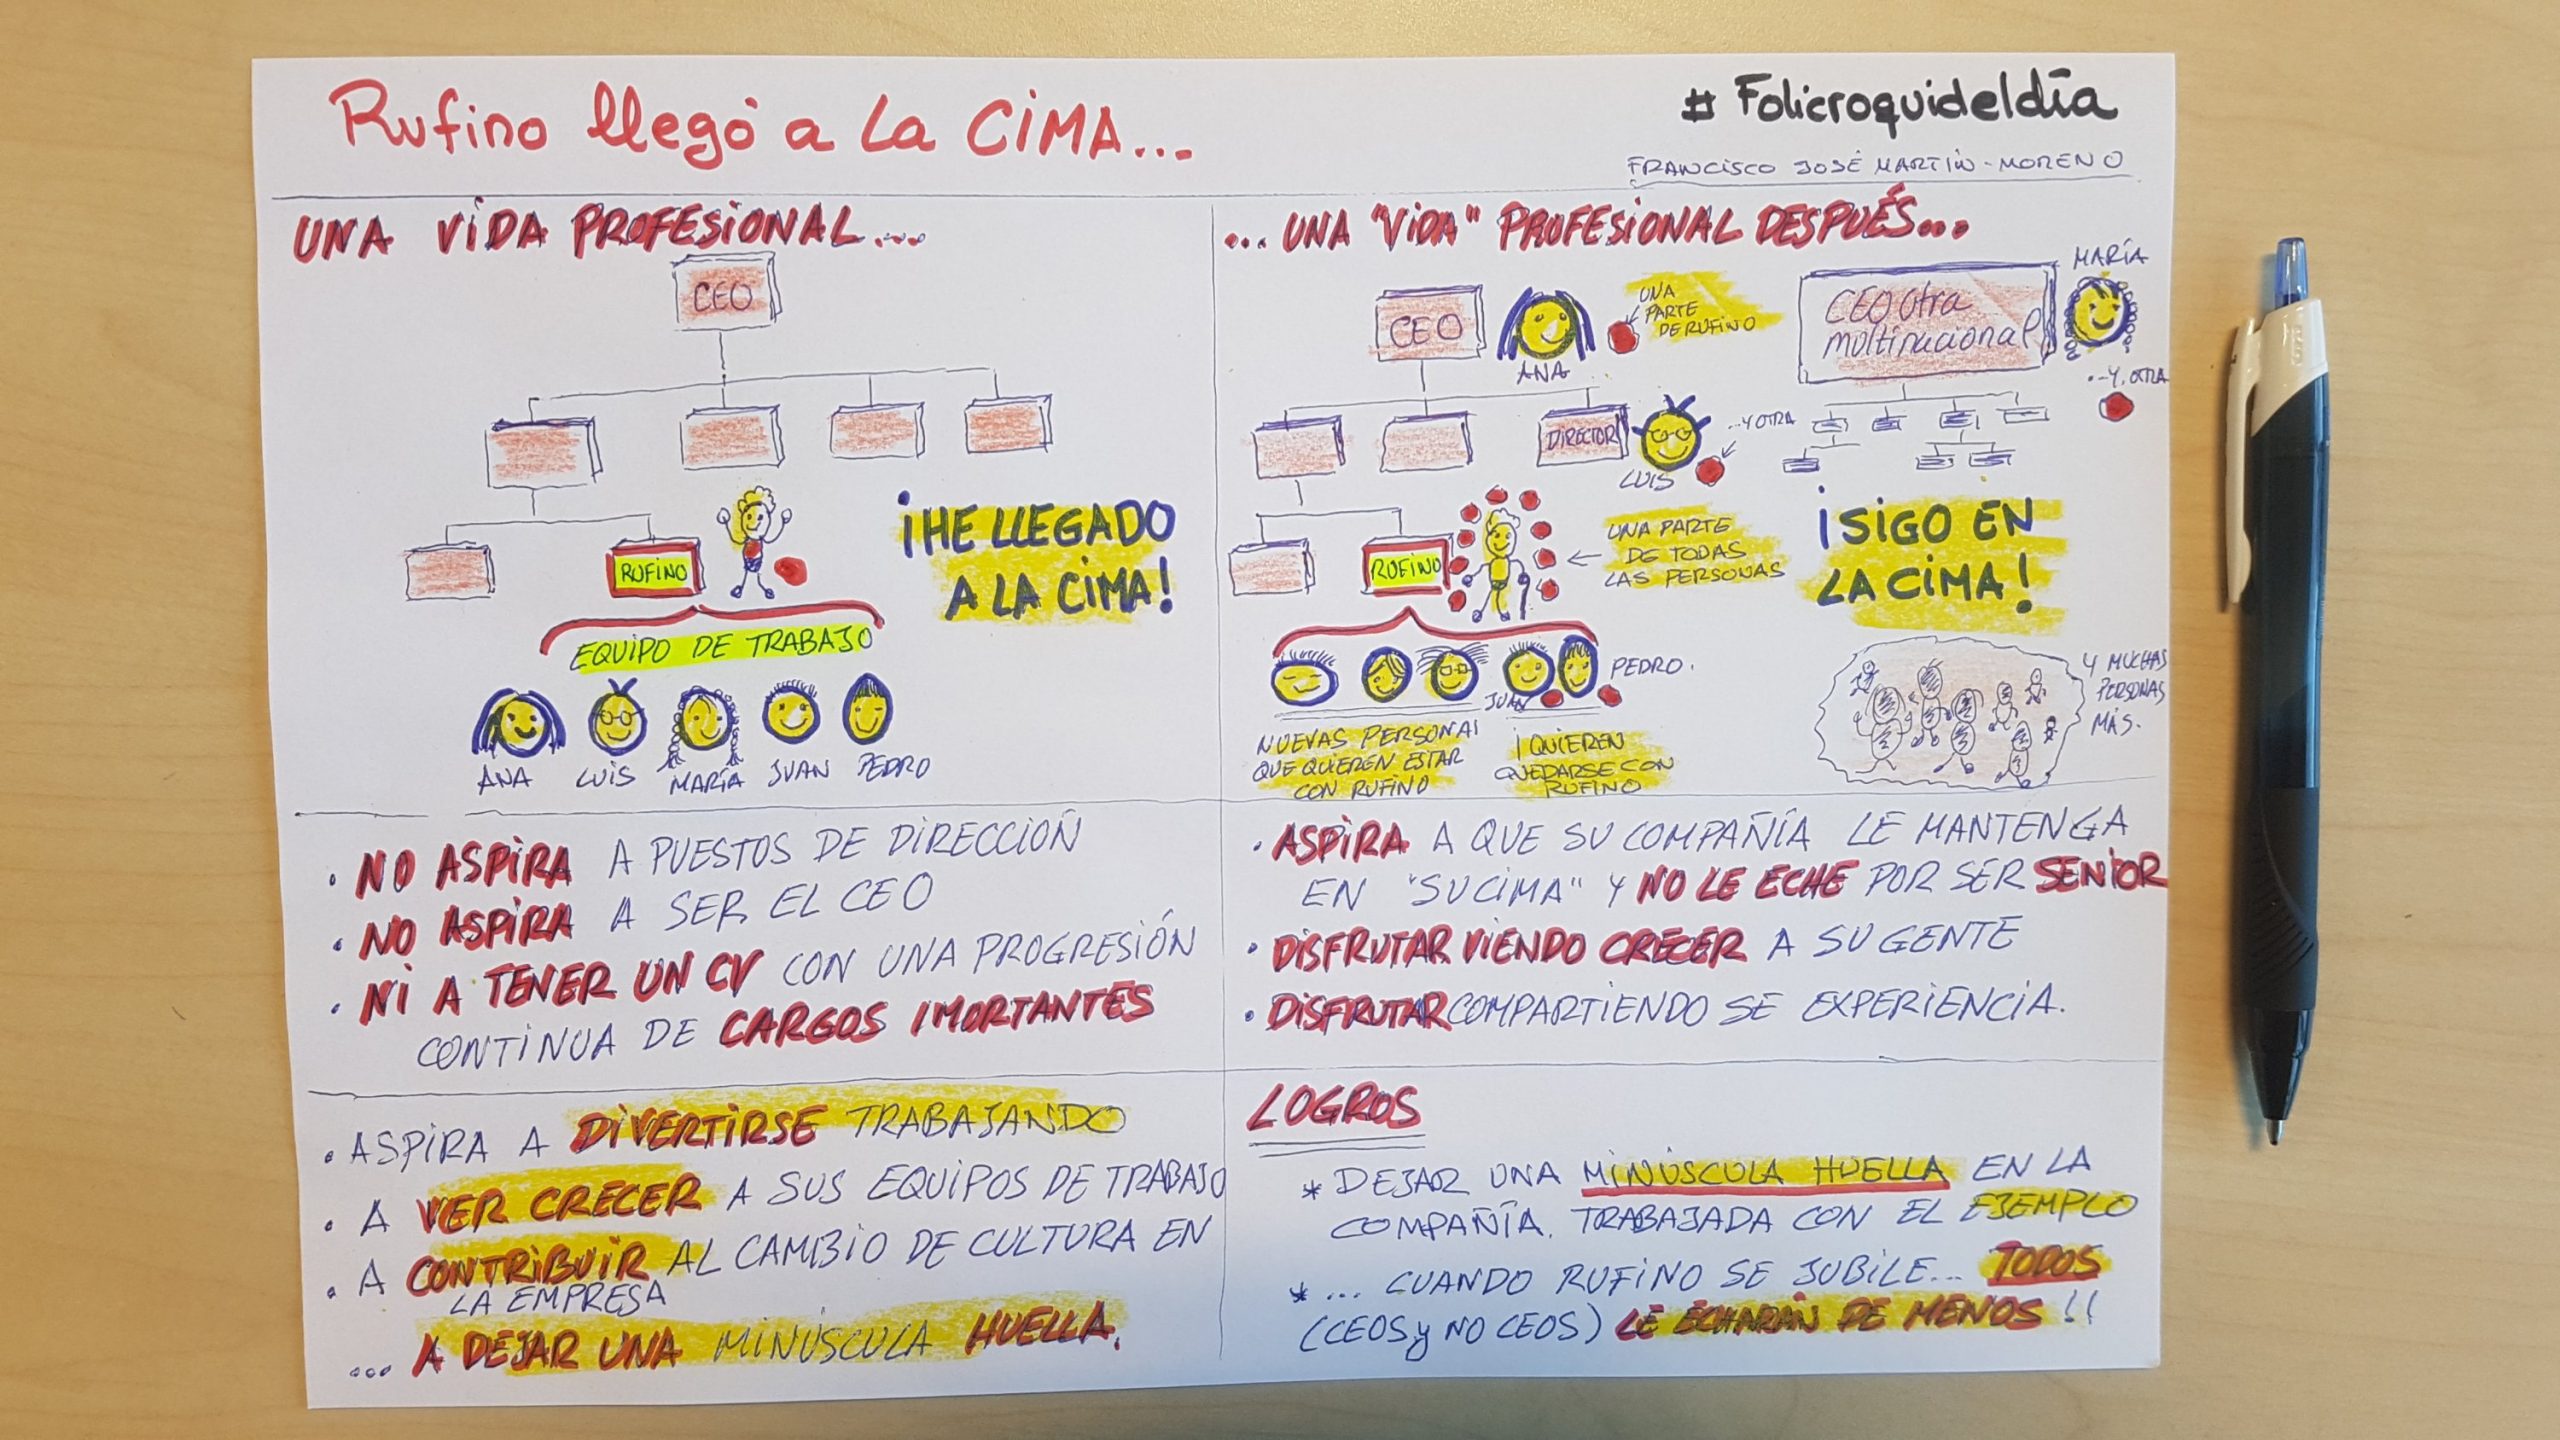 Rufino llegó a la CIMA...
# Folicroquideldía
FRANCISCO JOSÉ MARTÍN-MORENO
UNA VIDA PROFESIONAL...
CEO
RUFINO
¡HE LLEGADO
A LA CIMA!
EQUIPO DE TRABAJO
ANA LUIS MARÍA JUAN PEDRO
... UNA "VIDA" PROFESIONAL DESPUÉS...
CEO
ANA
UNA
PARTE
DE RUFINO
CEO otra
multinacional
MARÍA
...Y OTRA
DIRECTOR
LUIS
...Y OTRA
RUFINO
UNA PARTE
DE TODAS
LAS PERSONAS
¡SIGO EN
LA CIMA!
JUAN
PEDRO.
NUEVAS PERSONAS
QUE QUIEREN ESTAR
CON RUFINO
¡QUIEREN
QUEDARSE CON
RUFINO
Y MUCHAS
PERSONAS
MÁS.
• NO ASPIRA A PUESTOS DE DIRECCIÓN
• NO ASPIRA A SER EL CEO
• NI A TENER UN CV CON UNA PROGRESIÓN
CONTINUA DE CARGOS IMORTANTES
• ASPIRA A QUE SU COMPAÑÍA LE MANTENGA
EN "SU CIMA" Y NO LE ECHE POR SER SENIOR
• DISFRUTAR VIENDO CRECER A SU GENTE
• DISFRUTAR COMPARTIENDO SE EXPERIENCIA.
• ASPIRA A DIVERTIRSE TRABAJANDO
• A VER CRECER A SUS EQUIPOS DE TRABAJO
• A CONTRIBUIR AL CAMBIO DE CULTURA EN
LA EMPRESA
... A DEJAR UNA MINÚSCULA HUELLA.
LOGROS
* DEJAR UNA MINÚSCULA HUELLA EN LA
COMPAÑÍA. TRABAJADA CON EL EJEMPLO
* ... CUANDO RUFINO SE JUBILE... TODOS
(CEOS y NO CEOS) LE ECHARÁN DE MENOS!!